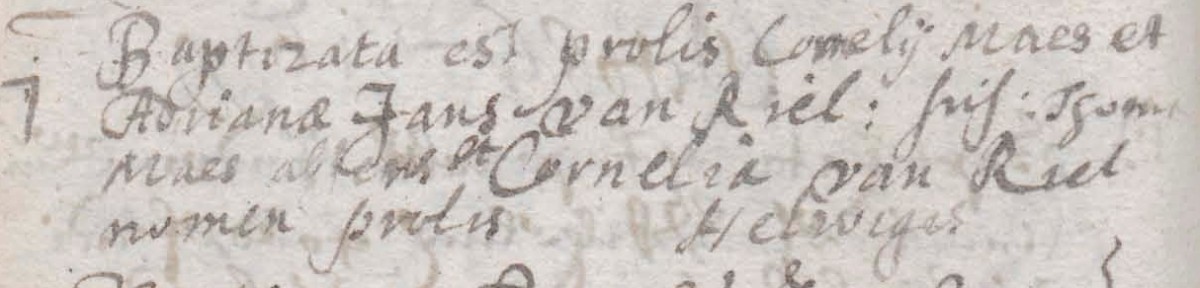 Baptizata est prolis Cornelij Maes et
7 Adrianæ Jans van Riel: sus: Thom
Maes absens et Cornelia van Riel
nomen prolis Helwigis